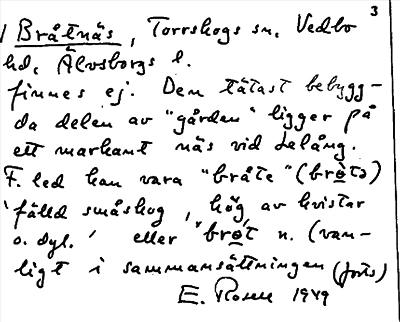 3
/ Bråtnäs, Torrskogs sn, Vedbo
hd, Älvsborgs l.
finnes ej. Den tätast bebygg-
da delen av "gården" ligger på
ett markant näs vid Lelång.
F. led kan vara "bråte" (brò̤tə)
'fälld småskog, hög av kvistar
o. dyl.' eller "bro̤t n. (van-
ligt i sammansättningen (forts)
E. Rosell 1949